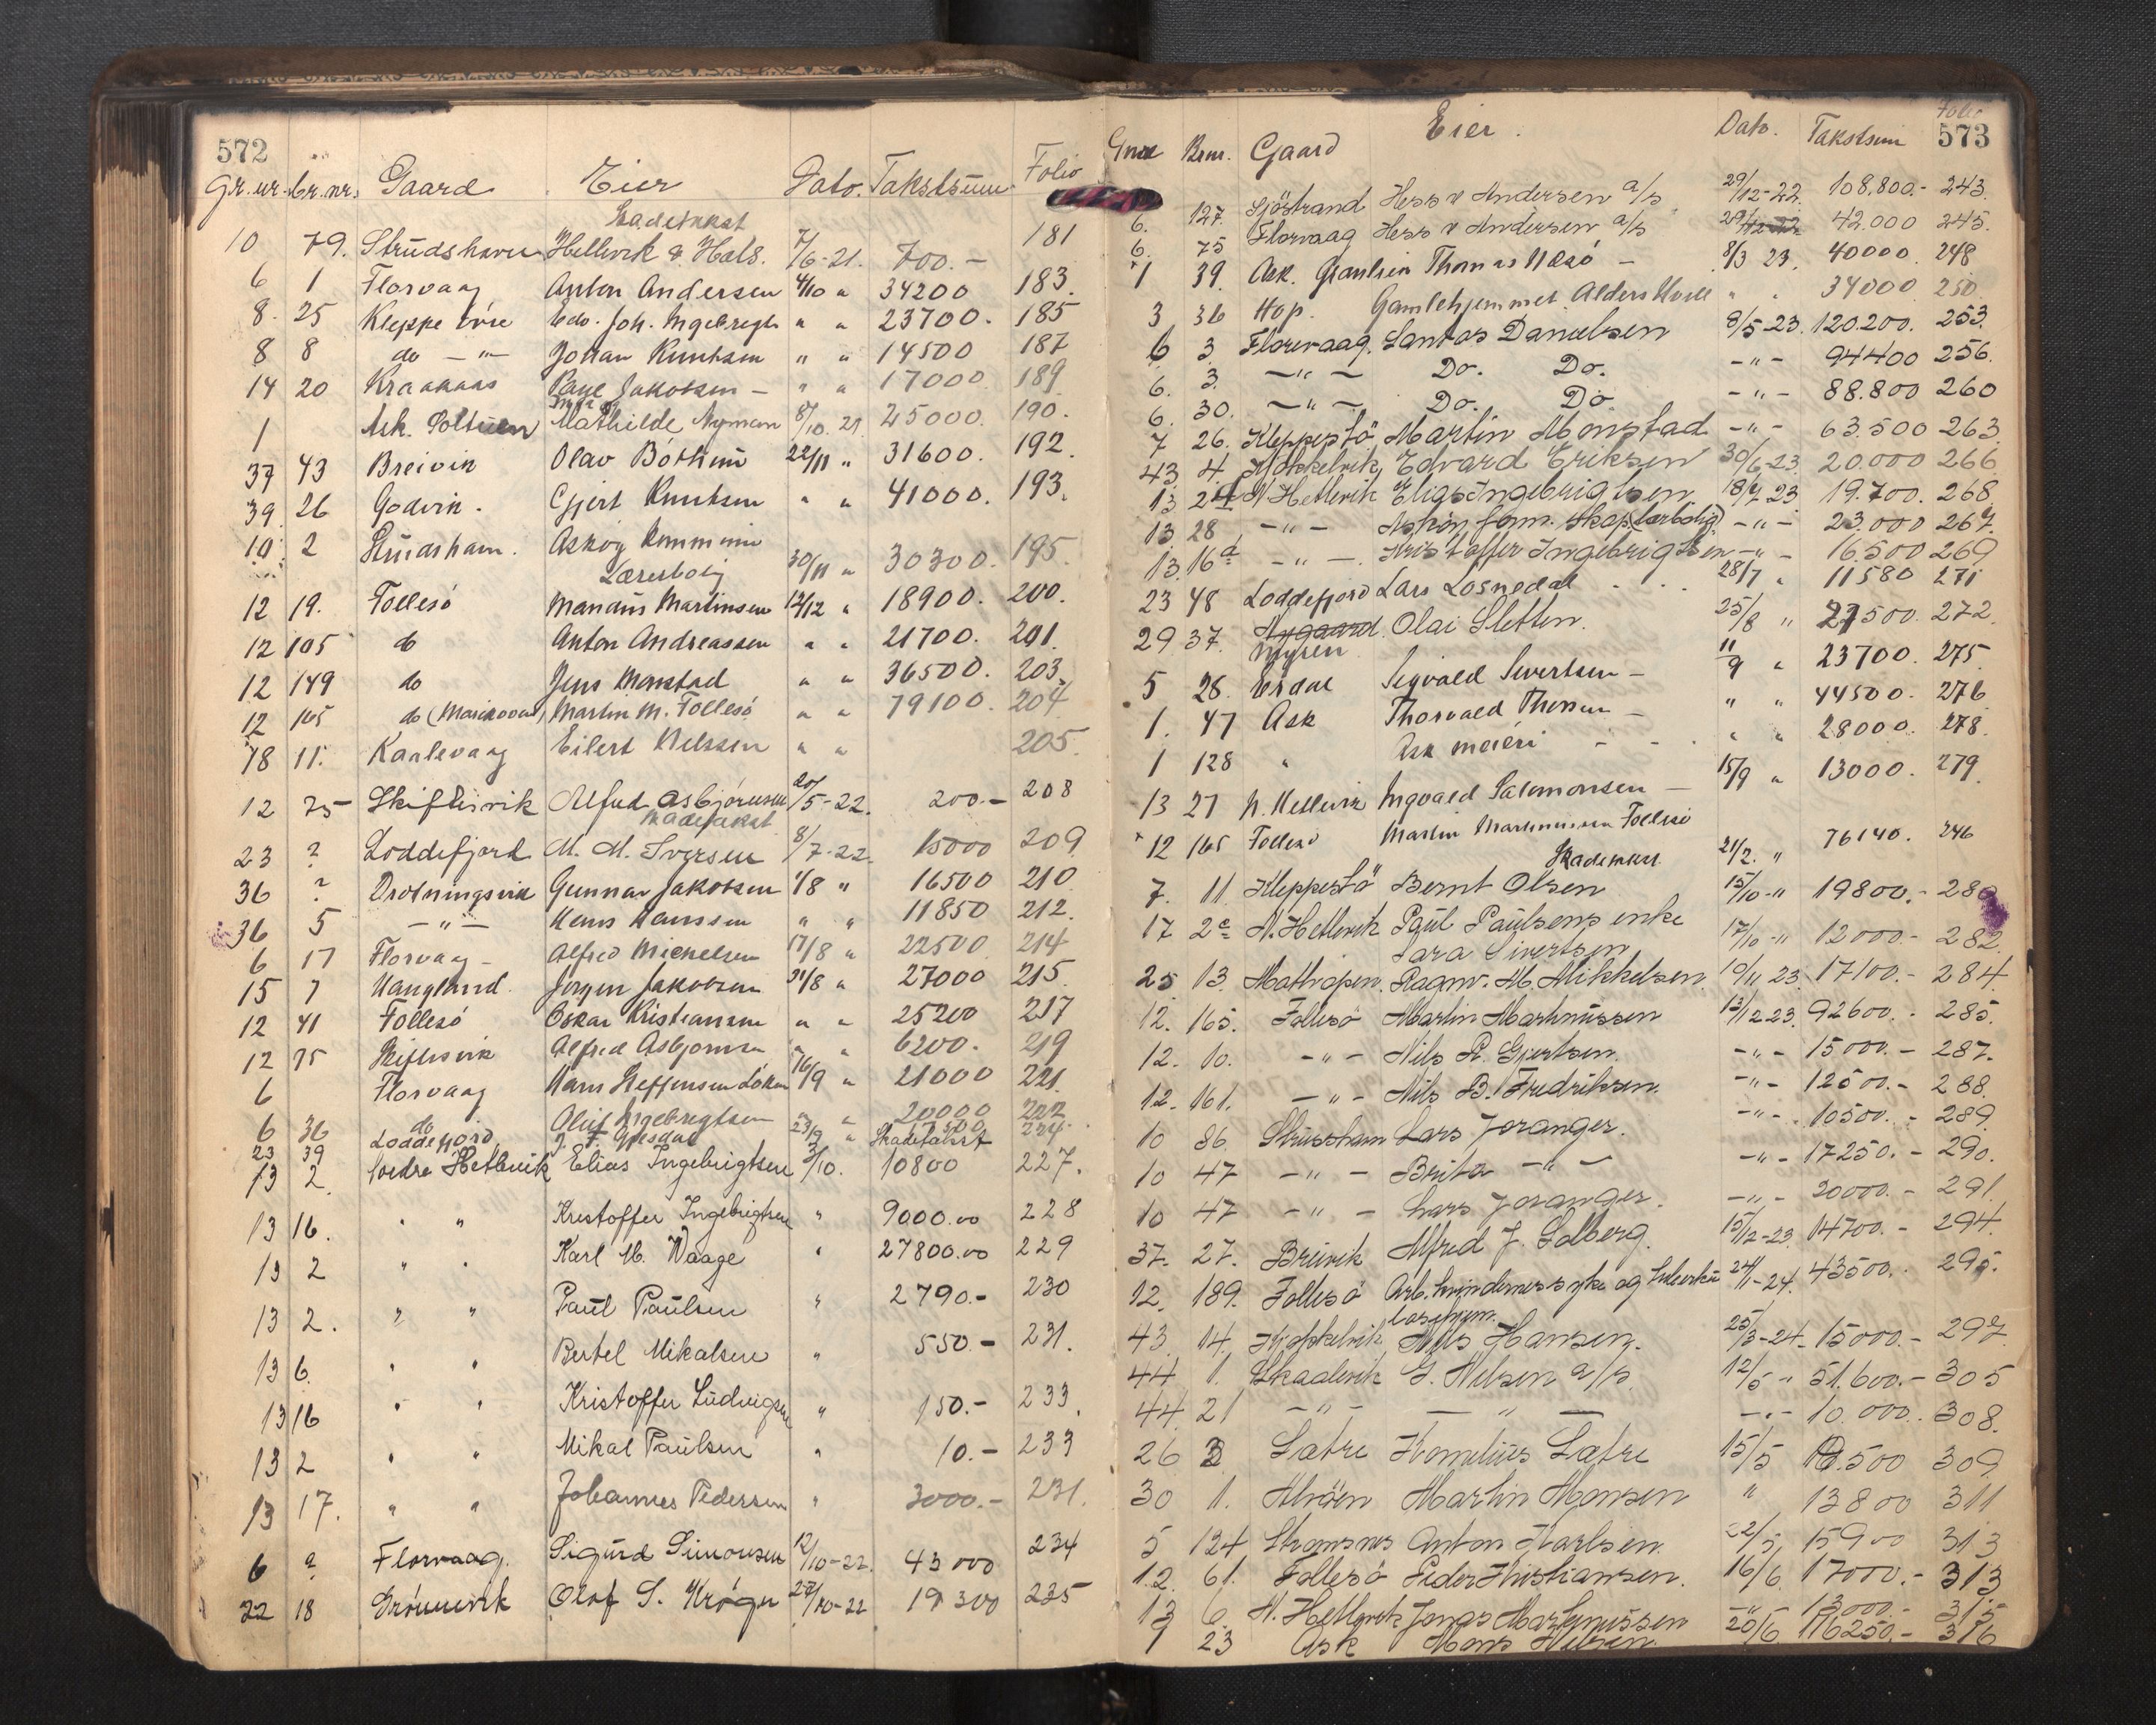 572
Gr.nr. br.nr. Gaard Eier Dato. Takstsum Folio
Skadetakst
10 79. Strudshavn Hellevik & Hals. 7/6-21. 700.- 181
6 1 Florvaag Anton Andersen 4/10 " 34200 183.
8. 25 Kleppe øvre Edv. Joh. Ingebregts " " 23700. 185
8 8 do -"- Johan Knutsen " " 14500 187
14 20 Kraakaas Jakobsen - " " 17000. 189
1 Ask. Mathilde Nyman 8/10. 21. 25000. 190.
37 43 Breivik Olav Bothun 22/11 " 31600. 192.
39. 26 Godvik. Gjert Knutsen " " 41000. 193.
10. 2 Strudsham. Askøy Kommune
Lærerbolig 30/11 " 30300. 195.
12 19. Follesø Mandius Martinsen 12/12 " 18900. 200.
12 105 do Anton Andreassen " " 21700. 201.
12 149 do Jens Monstad " " 36500. 203.
12 165 do Martin M. Follesø " " 79100. 204
78 11. Kaalevaag Eilert Nelssen " " 205.
12 75 Skiftesvik Alfred Asbjørnsen 20/5-22. 200.- 208
Skadetakst
23 ? Loddefjord M. M. Iversen 8/7-22. 15000 209.
36 ? Drotningsvik Gunnar Jakobsen 1/8 " 16500 210.
36 5 -"- Hans Hanssen " " 11850 212.
6 17 Florvaag - Alfred Mickelsen 17/8 " 22500 214
15 7 Haugland. Jørgen Jakobsen 31/8 " 27000 215.
12 41 Follesø Oskar Kristiansen " " 25200 217
12 75 Skiftesvik Alfred Asbjørnsen " " 6200. 219
6 Florvaag Hans Steffensen 16/9 " 21000 221.
6 36 do Oluf Ingebregtsen " 20000 222
23 39 Loddefjord 23/9 " Skadetakst 224
13 2. Søedre Hetlevik Elias Ingebrigtsen 3/10. 10800 227.
13 16. " " Kristoffer Ingebrigtsen " 9000.00 228
13 2 " " Karl M. Waage " 27800.00 229
13 2. " " Paul Paulsen " 2790.- 230
13 6. " " Bertel Mikalsen " 550.- 231.
13 16 " " Kristoffer Ludvigsen " 150.- 233.
13 2 " " Mikal Paulsen " 10.- 233
13 17. " " Johannes Pedersen " 3000.- 231.
6 ? Florvaag. Sigurd Simonsen 12/10-22. 43000 234
22 18 Grønnevik Olaf S. Krøger 27/10-22 19300 235
Folio
573
Gnr Brnr. Gaard Eier. Dato. Takstsum
6. 127. Sjøstrand Hess & Andersen a/s 29/12-22. 108.800.- 243.
6. 75 Florvaag Hess & Andersen a/s 29/12-22 42.000 245.
1 39. Ask. Thomas Næsø - 8/3 23. 40000. 248
3 36 Hop. Gamlehjemmet Alders Hvile " " 34000 250
6 3. Florevaag. Santos Danielsen 8/5-23. 120.200. 253.
6. 3. -"- Do. Do. -"- 94400 256.
6. 30. -"- Do. Do. -"- 88.800 260
7 26. Kleppestø Martin Monstad -"- 63.500 263.
43. 4. Kjøkkelvik Edvard Eriksen 30/6-23. 20.000 266.
13 2 N. Hetlevik Elias Ingebrigtsen. 18/7 23 19.700. 268.
13 28 -"- Askøy Skap (lærbolig) -"- 23.000 267.
13. 16a -"- Kristoffer Ingebrigtsen -"- 16.500 269
23 48 Loddefjord Lars Losnedal 28/7 " 11580 271
29 37. Nygaard Olai Sletten. 25/8 " 500. 272.
Myren
5 28. Erdal Sigvald Sivertsen - 11/9 " 23700. 275
1. 47 Ask Thorvald - " " 44500. 276.
1 128 " Ask meieri - " " 28000. 278.
13 27 N. Hetlevik Ingvald Salomonsen - 15/9 " 13000. 279
12 165 Follesø Martin Martinussen Follesø 21/2. " 76140. 246
Skadetakst
7. 11. Kleppestø Bernt Olsen 15/10-" 19800.- 280
17 2c N. Hetlevik Paul Paulsens enke
Sara Sivertsen 17/10-" 12000.- 282
25 13. Mathopen. Ragnv. M. Mikkelsen. 19/11 23. 17100.- 284.
12. 165. Follesø Martin Martinussen 13/12-23. 92600.- 285.
12. 10. -"- Nils R. Gjertsen. -"- 15000.- 287.
12. 161. -"- Nils B. Fredriksen. -"- 12500.- 288.
10 86. Strussham Lars Joranger. -"- 10500.- 289.
10 47 -"- Brita -"- -"- 17250.- 290.
10 47 -"- Lars Joranger. -"- 20000.- 291.
37. 27. Breivik Alfred J. Solberg. 15/12-23. 14700.- 294.
12. 189. Follesø Arb. kvindernes syke og 24/1-24. 43500.- 295.
43. 14. Kjøkkelvik Nils Hansen. 25/3-24. 15000.- 297.
44 1. Skaalevik G. Nilsen a/s. 12/5-" 51.600.- 305
44. 21 -"- -"- -"- 10.000.- 308.
26 3 Sætre Kornelius Sætre 15/5 10.500 309.
30 1. Alvøen Martin Monsen " 13800 311
5 124 Strømsnes Anton Karlsen. 22/5 15900 313
12. 61. Follesø Peder Kristiansen. 16/6 17000.- 313
13 6. N. Hetlevik Jonas Martinussen -"- 13000.- 315
1 23 Ask Mons Nilsen 20/6 116250.- 316